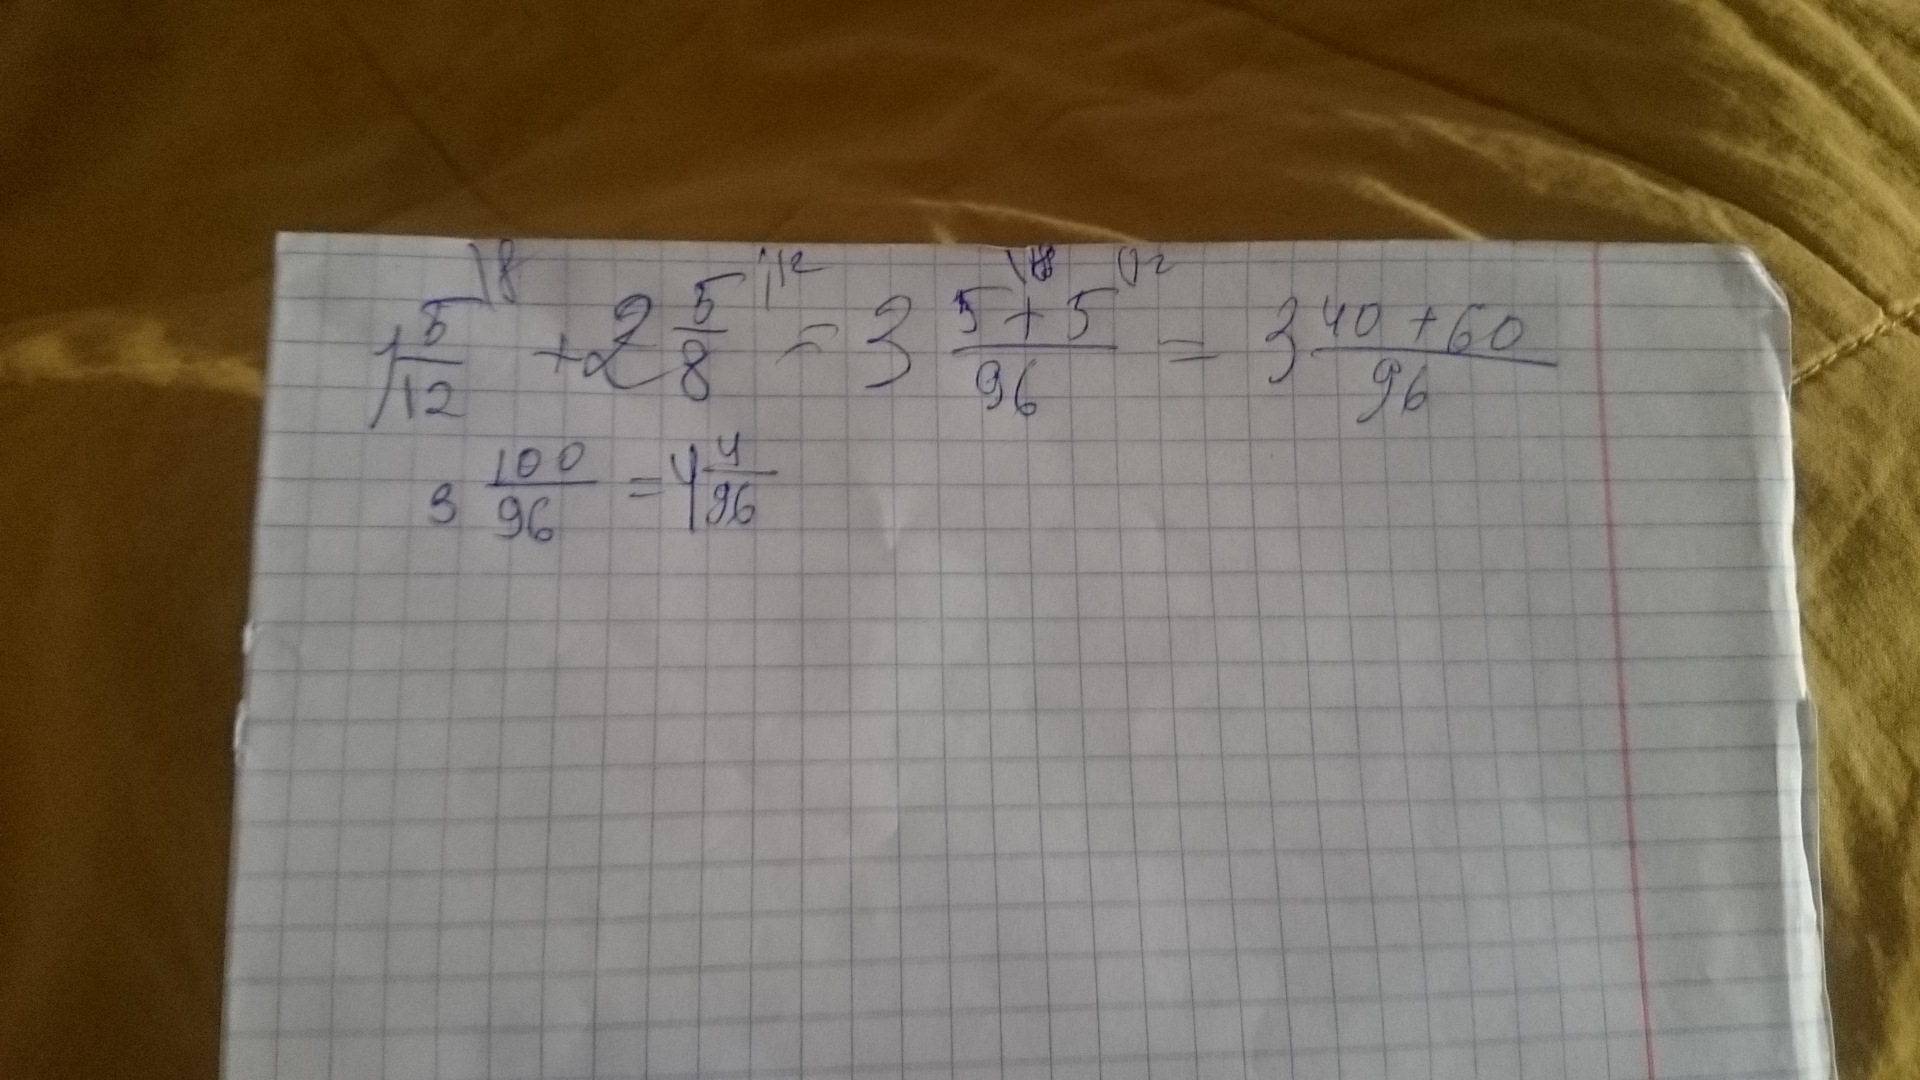 1 5/12 \8 + 2 5/8 \12 = 3 5\8 + 5\12 / 96 = 3 40 + 60 / 96
3 100/96 = 4 4/96